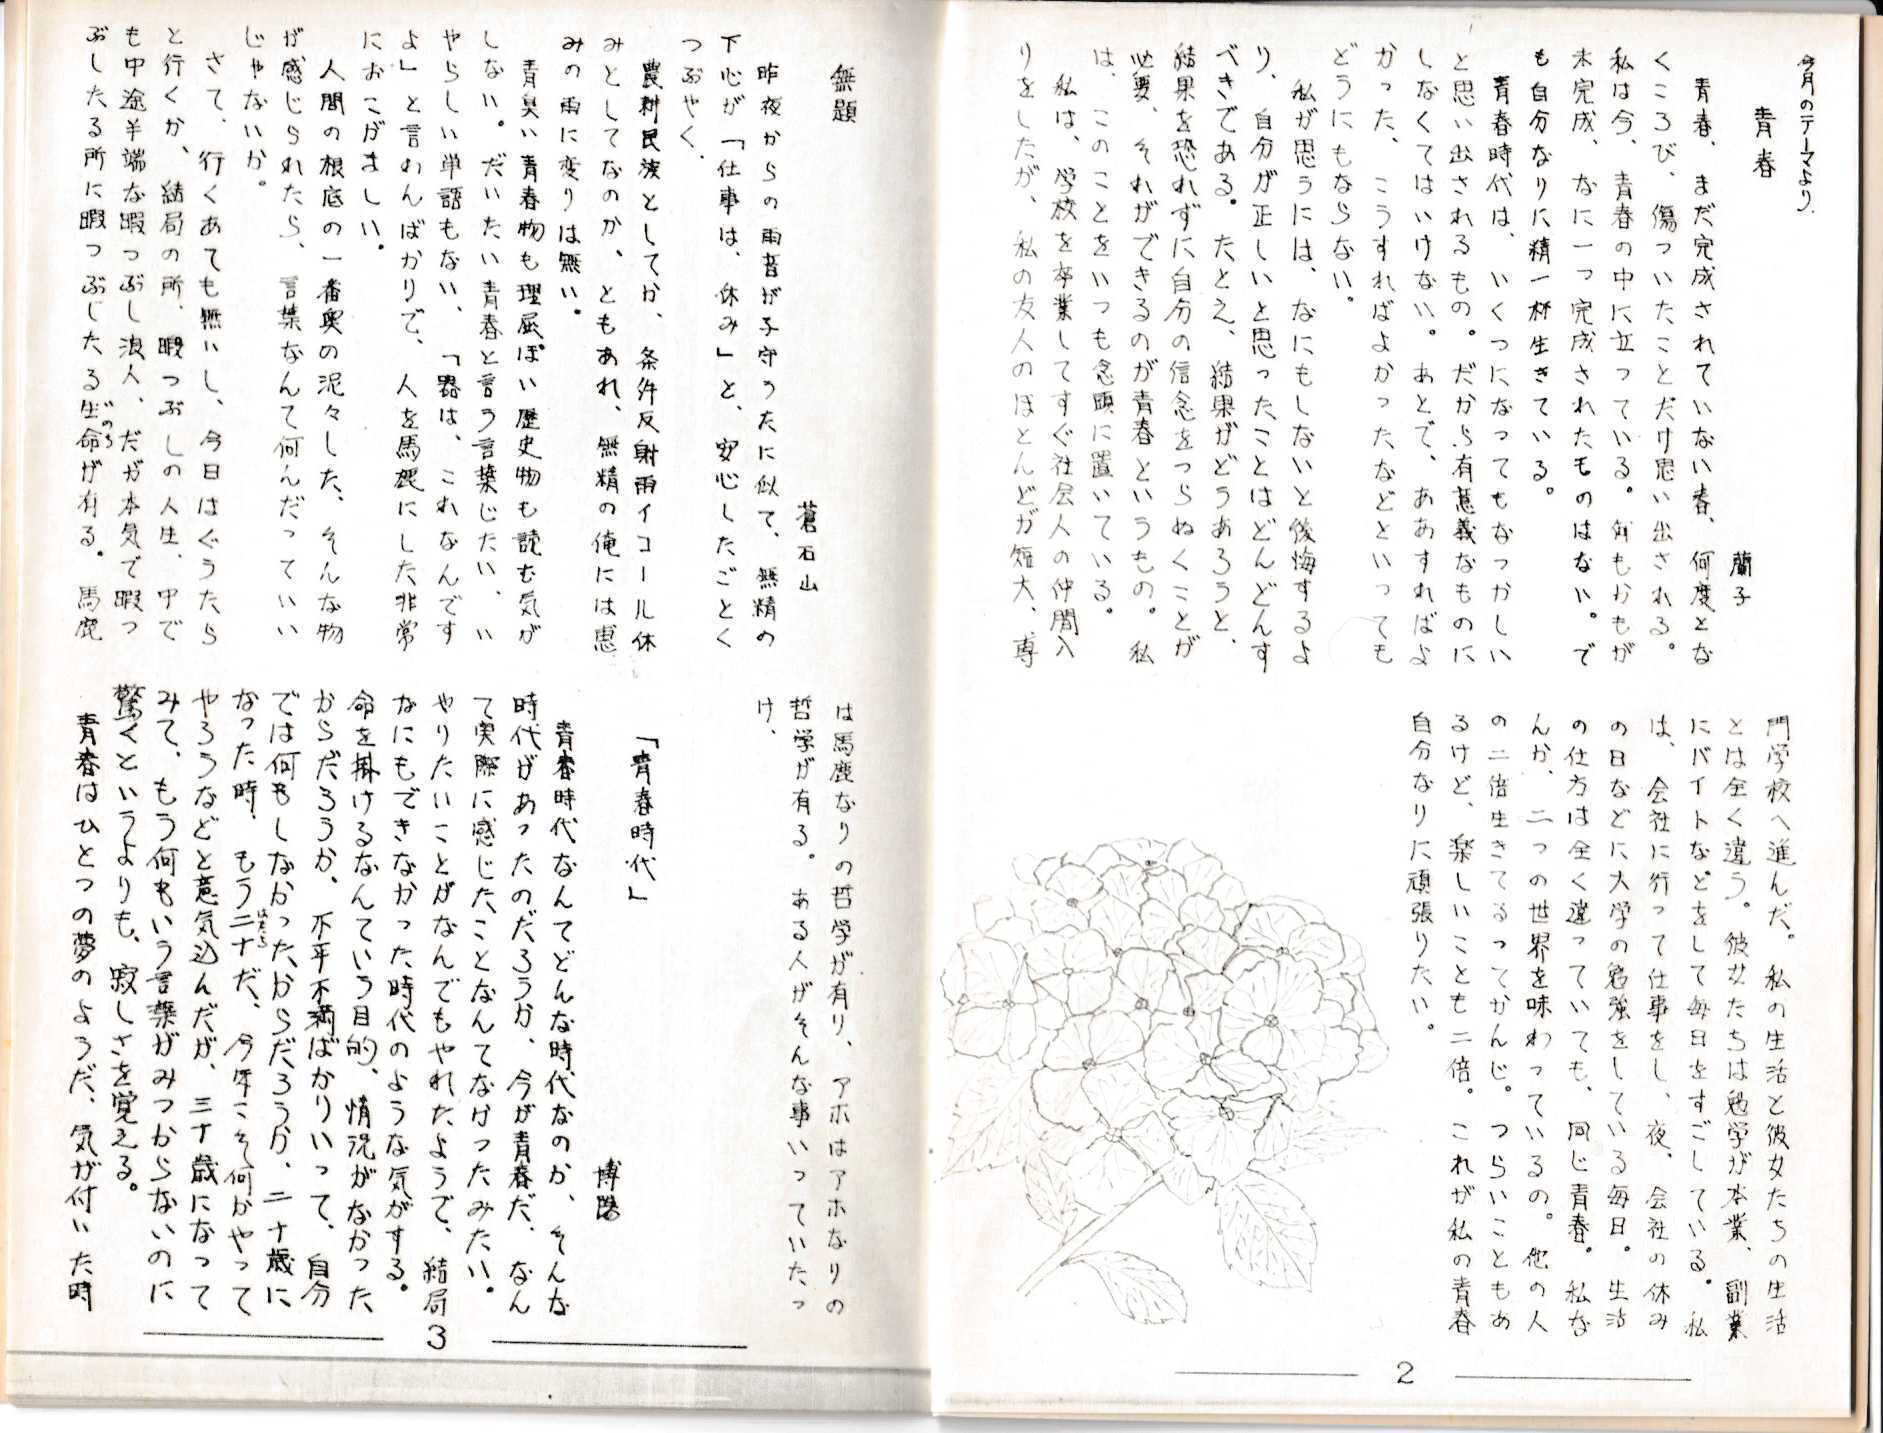 今月のテーマより、
青春
蘭子
青春、まだ完成されていない春、何度とな
くころび、傷ついたことだけ思い出される。
私は今、青春の中に立っている。何もかもが
未完成、なに一つ完成されたものはない。で
も自分なりに精一杯生きている。
青春時代は、いくつになってもなつかしい
と思い出されるもの。だから有意義なものに
しなくてはいけない。あとで、ああすればよ
かった、こうすればよかった、などといっても
どうにもならない。
私が思うには、なにもしないと後悔するよ
り、自分が正しいと思ったことはどんどんす
べきである。たとえ、結果がどうあろうと、
結果を恐れずに自分の信念をつらぬくことが
必要、それができるのが青春というもの。私
は、このことをいつも念頭に置いている。
私は、学校を卒業してすぐ社会人の仲間入
りをしたが、私の友人のほとんどが短大、専
門学校へ進んだ。私の生活と彼女たちの生活
とは全く違う。彼女たちは勉学が本業、副業
にバイトなどをして毎日をすごしている。私
は、会社に行って仕事をし、夜、会社の休み
の日などに大学の勉強をしている毎日。生活
の仕方は全く違っていても、同じ青春。私な
んか、二つの世界を味わっているの。他の人
の二倍生きてるってかんじ。つらいこともあ
るけど、楽しいことも二倍。これが私の青春
自分なりに頑張りたい。
2
無題
蒼石山
昨夜からの雨音が子守うたに似て、無精の
下心が「仕事は、休み」と、安心したごとく
つぶやく、
農耕民族としてか、条件反射雨イコール休
みとしてなのか、ともあれ、無精の俺には恵
みの雨に変りは無い。
青臭い青春物も理屈ぽい歴史物も読む気が
しない。だいたい青春と言う言葉じたい、い
やらしい単語もない、「器は、これなんです
よ」と言わんばかりで、人を馬鹿にした非常
におこがましい。
人間の根底の一番奥の泥々した、そんな物
が感じられたら、言葉なんて何んだっていい
じゃないか。
さて、行くあても無いし、今日はぐうたら
と行くか、結局の所、暇つぶしの人生、中で
も中途半端な暇つぶし浪人、だが本気で暇つ
ぶしたる所に暇つぶしたる生命が有る。馬鹿
は馬鹿なりの哲学が有り、アホはアホなりの
哲学が有る。ある人がそんな事いっていたっ
け、
「青春時代」
青春時代なんてどんな時代なのか、そんな
時代があったのだろうか、今が青春だ、なん
て実際に感じたことなんてなかったみたい。
やりたいことがなんでもやれたようで、結局
なにもできなかった時代のような気がする。
命を掛けるなんていう目的、情況がなかった
からだろうか、不平不満ばかりいって、自分
では何もしなかったからだろうか、二十歳に
なった時、もう二十だ、今年こそ何かやって
やろうなどと意気込んだが、三十歳になって
みて、もう何もいう言葉がみつからないのに
驚くというよりも、寂しさを覚える。
青春はひとつの夢のようだ、気が付いた時
3